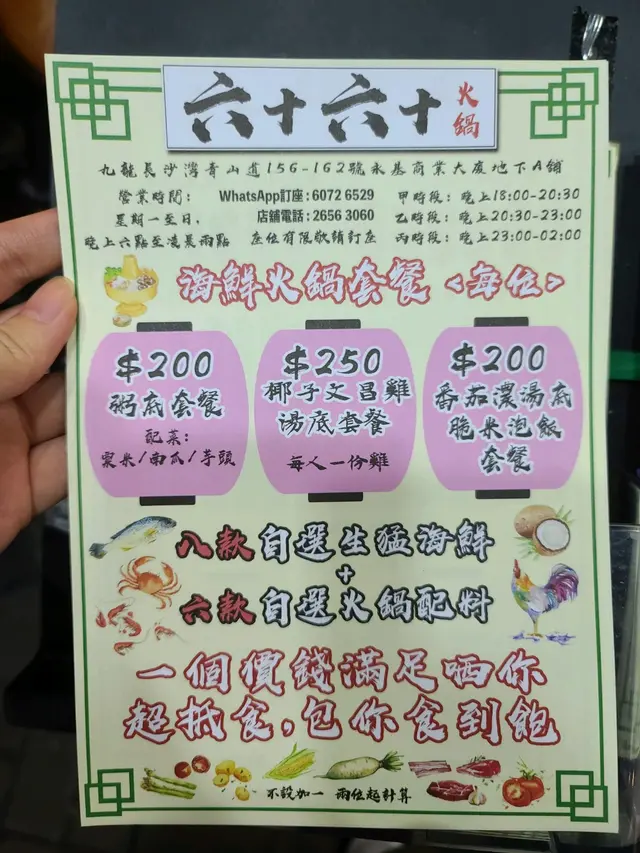 六十六十火鍋
九龍長沙灣青山道156-162號永基商業大廈地下A舖
營業時間:
星期一至日,
晚上六點至凌晨兩點
WhatsApp訂座:6072 6529
店舖電話:2656 3060
座位有限敬請訂座
甲時段:晚上18:00-20:30
乙時段:晚上20:30-23:00
丙時段:晚上23:00-02:00
海鮮火鍋套餐<每位>
$200
粥底套餐
配菜:
粟米/南瓜/芋頭
$250
椰子文昌雞
湯底套餐
每人一份雞
$200
番茄濃湯底
脆米泡飯
套餐
八款自選生猛海鮮
+
六款自選火鍋配料
一個價錢滿足哂你
超抵食,包你食到飽
不設加一 兩位起計算